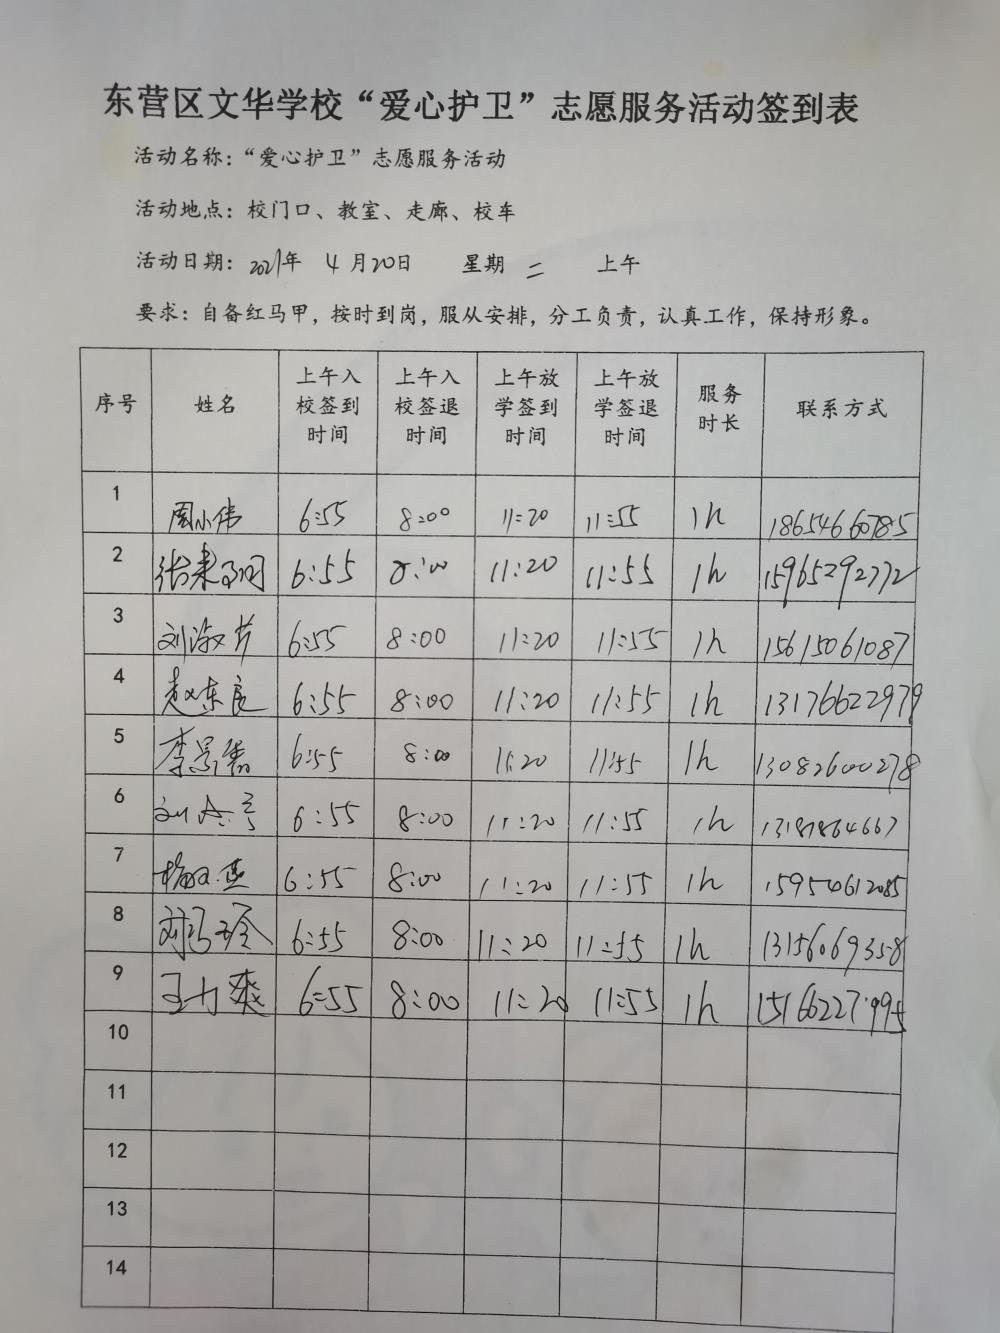 东营区文华学校“爱心护卫”志愿服务活动签到表
活动名称：“爱心护卫”志愿服务活动
活动地点：校门口、教室、走廊、校车
活动日期：2021年 4月20日 星期二 上午
要求：自备红马甲，按时到岗，服从安排，分工负责，认真工作，保持形象。
序号 姓名 上午入校签到时间 上午入校签退时间 上午放学签到时间 上午放学签退时间 服务时长 联系方式
1 周小伟 6:55 8:00 11:20 11:55 1h 18654660785
2 6:55 8:00 11:20 11:55 1h 15965292772
3 刘淑芹 6:55 8:00 11:20 11:55 1h 15615061087
4 赵东良 6:55 8:00 11:20 11:55 1h 13176622979
5 6:55 8:00 11:20 11:55 1h 13082600278
6 6:55 8:00 11:20 11:55 1h
7 6:55 8:00 11:20 11:55 1h 159540612085
8 6:55 8:00 11:20 11:55 1h 13156069358
9 6:55 8:00 11:20 11:55 1h
10
11
12
13
14